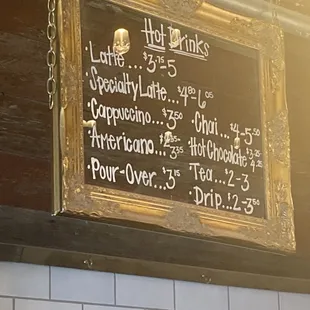 Hot Drinks
Latte...$3.75-5
Specialty Latte...$4.80-6.05
Cappuccino...$3.50
Americano...$2.85-3.35
Pour-Over...$3.75
Chai...$4-5.50
Hot Chocolate
$3.25-4.25
Tea...$2-3
Drip...$2-3.50